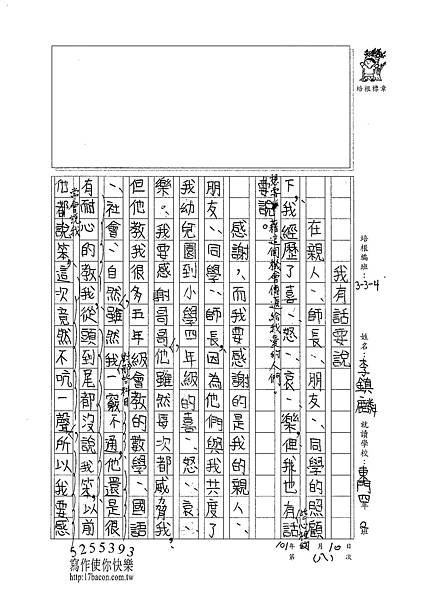 培根標章
培根編班：3-3-4
姓名：李鎮麟
就讀學校：東門四年 班
101年 月10日
第（八）次
我有話要說
在親人、師長、朋友、同學的照顧
下，我經歷了喜、怒、哀、樂，但我也有話
要說。
想 藉這個機會傳遞給我愛的人們。
感謝，而我要感謝的是我的親人、
朋友、同學、師長，因為他們與我共度了
我幼兒園到小學四年級的喜、怒、哀、
樂。我要感謝哥哥，他雖然每次都威脅我，
但他教我很多五年級會教的數學、國語
、社會、自然，雖然我一竅不通，他還是很
有耐心的教我，從頭到尾都沒說我笨，以前
他都說笨，這次竟然不吭一聲，所以我要感
5255393
寫作使你快樂
http://17bacon.com.tw